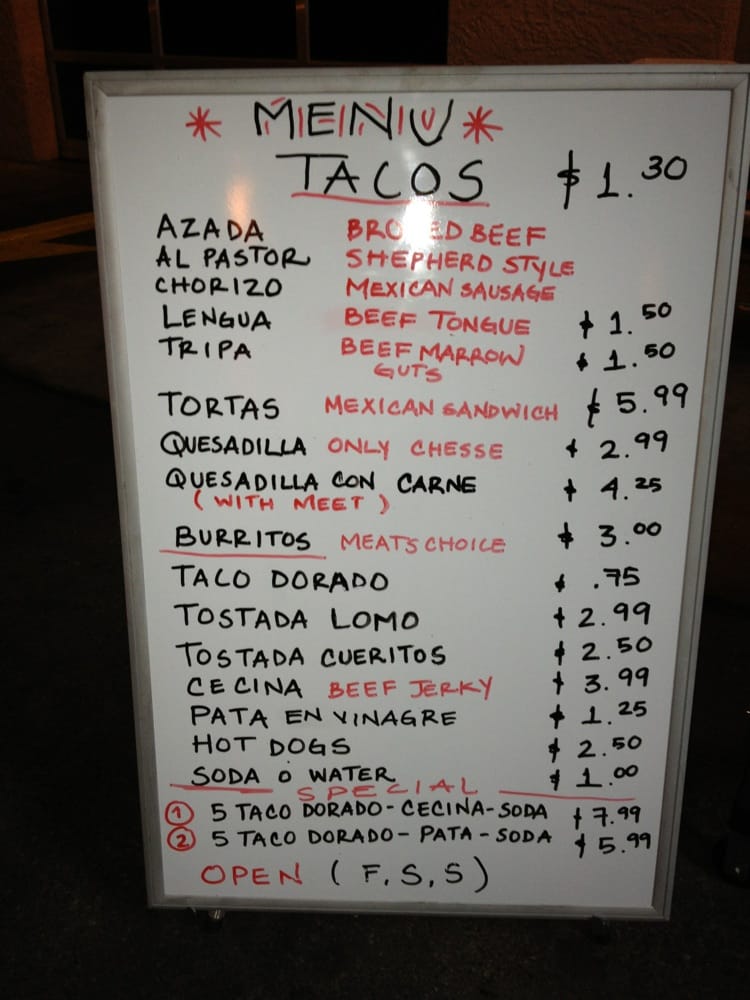 * MENU *
TACOS $1.30
AZADA BEEF
AL PASTOR SHEPHERD STYLE
CHORIZO MEXICAN SAUSAGE
LENGUA BEEF TONGUE $1.50
TRIPA BEEF MARROW $1.50
GUTS
TORTAS MEXICAN SANDWICH $5.99
QUESADILLA ONLY CHESSE $2.99
QUESADILLA CON CARNE $4.25
(WITH MEET)
BURRITOS MEATS CHOICE $3.00
TACO DORADO $.75
TOSTADA LOMO $2.99
TOSTADA CUERITOS $2.50
CECINA BEEF JERKY $3.99
PATA EN VINAGRE $1.25
HOT DOGS $2.50
SODA O WATER $1.00
SPECIAL
① 5 TACO DORADO-CECINA-SODA $7.99
② 5 TACO DORADO-PATA-SODA $5.99
OPEN (F,S,S)